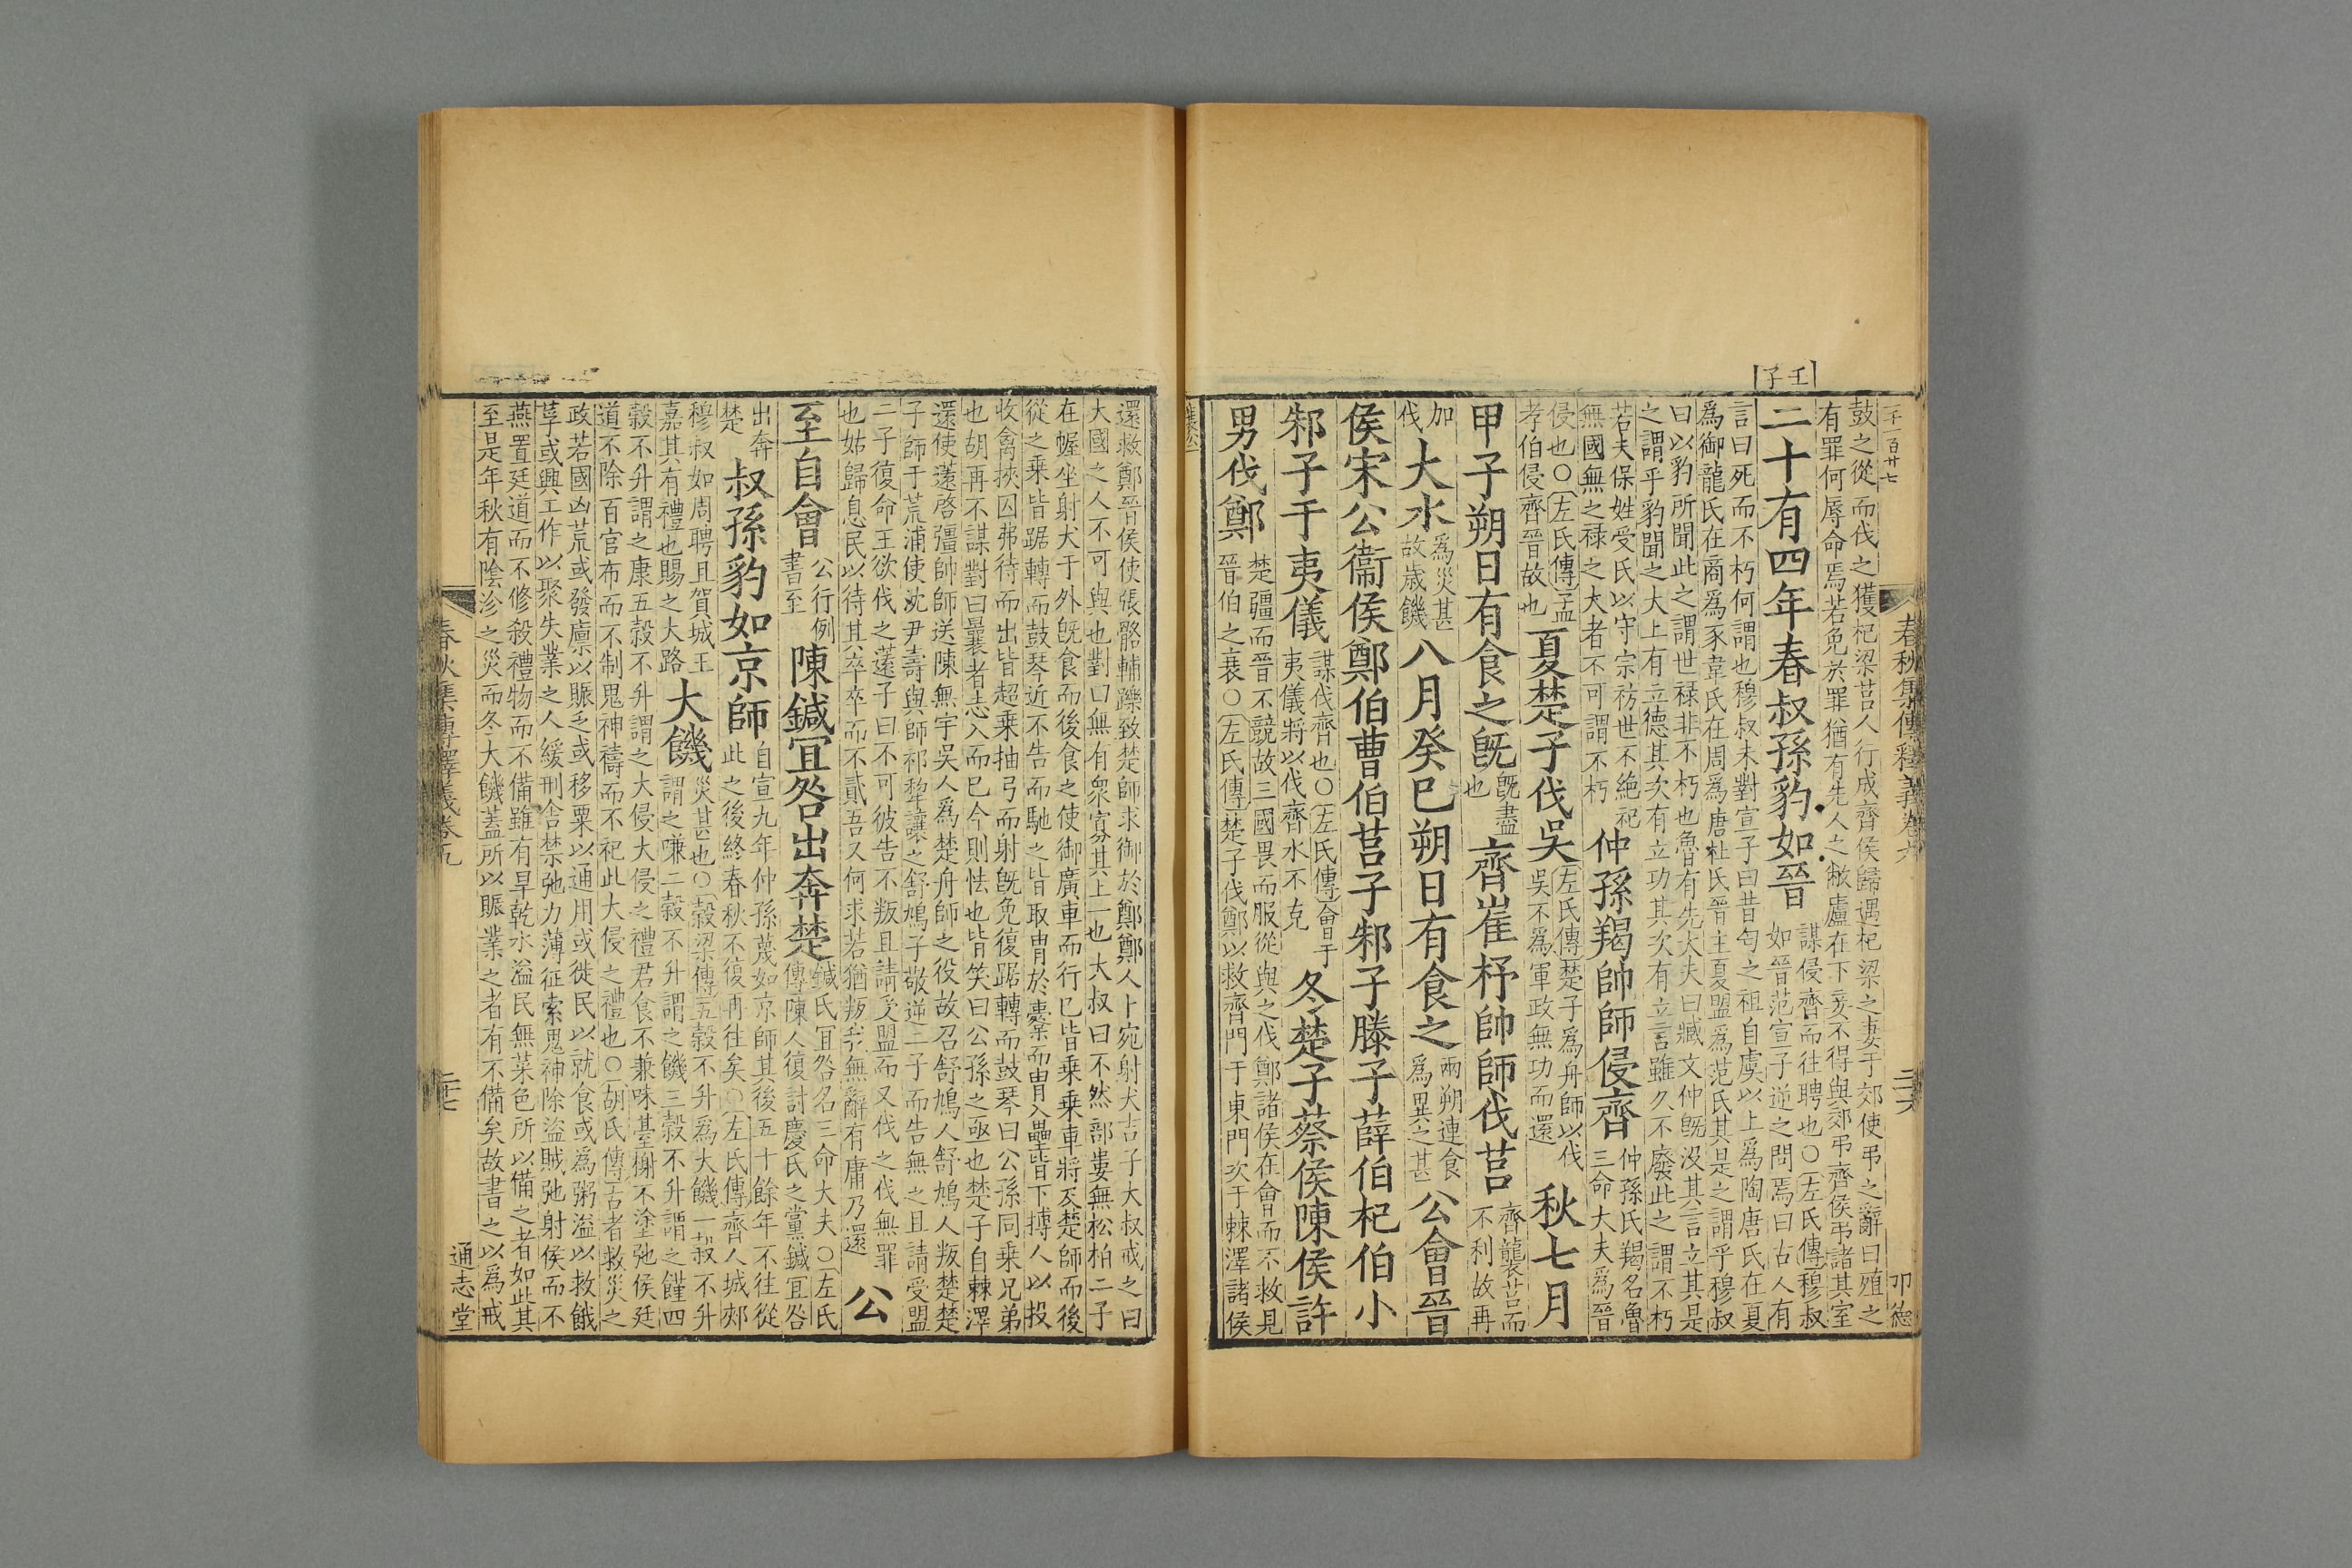 壬子
鼓之從而伐之獲杞梁莒人行成齊侯歸遇杞梁之妻于郊使弔之辭曰殖之
有罪何辱命焉若免於罪猶有先人之敝廬在下妾不得與郊弔齊侯弔諸其室
二十有四年春叔孫豹如晉
謀侵齊而往聘也○左氏傳穆叔
如晉范宣子逆之問焉曰古人有
言曰死而不朽何謂也穆叔未對宣子曰昔匄之祖自虞以上爲陶唐氏在夏
爲御龍氏在商爲豕韋氏在周爲唐杜氏晉主夏盟爲范氏其是之謂乎穆叔
曰以豹所聞此之謂世祿非不朽也魯有先大夫曰臧文仲旣没其言立其是
之謂乎豹聞之大上有立德其次有立功其次有立言雖久不廢此之謂不朽
若夫保姓受氏以守宗祊世不絶祀
無國無之祿之大者不可謂不朽
仲孫羯帥師侵齊
仲孫氏羯名魯
三命大夫爲晉
侵也○左氏傳孟
孝伯侵齊晉故也
夏楚子伐吳
左氏傳楚子爲舟師以伐
吳不爲軍政無功而還
秋七月
甲子朔日有食之旣
旣盡
也
齊崔杼帥師伐莒
齊襲莒而
不利故再
加
伐
大水
爲災甚
故歲饑
八月癸巳朔日有食之
兩朔連食
爲異之甚
公會晉
侯宋公衞侯鄭伯曹伯莒子邾子滕子薛伯杞伯小
邾子于夷儀
謀伐齊也○左氏傳會于
夷儀將以伐齊水不克
冬楚子蔡侯陳侯許
男伐鄭
楚疆而晉不競故三國畏而服從與之伐鄭諸侯在會而不救見
晉伯之衰○左氏傳楚子伐鄭以救齊門于東門次于棘澤諸侯
還救鄭晉侯使張骼輔躒致楚師求御於鄭鄭人卜宛射犬吉子大叔戒之曰
大國之人不可與也對曰無有衆寡其上一也大叔曰不然部婁無松柏二子
在幄坐射犬于外旣食而後食之使御廣車而行已皆乗乗車將及楚師而後
從之乗皆踞轉而鼓琴近不告而馳之皆取冑於櫜而冑入壘皆下搏人以投
收禽挾囚弗待而出皆超乗抽弓而射旣免復踞轉而鼓琴曰公孫同乗兄弟
也胡再不謀對曰曩者志入而已今則怯也皆笑曰公孫之亟也楚子自棘澤
還使薳啓彊帥師送陳無宇吳人爲楚舟師之役故召舒鳩人舒鳩人叛楚楚
子師于荒浦使沈尹壽與師祁犂讓之舒鳩子敬逆二子而告無之且請受盟
二子復命王欲伐之薳子曰不可彼告不叛且請受盟而又伐之伐無罪
也姑歸息民以待其卒卒而不貳吾又何求若猶叛我無辭有庸乃還
公
至自會
公行例
書至
陳鍼宜咎出奔楚
鍼氏宜咎名三命大夫○左氏
傳陳人復討慶氏之黨鍼宜咎
出奔
楚
叔孫豹如京師
自宣九年仲孫蔑如京師其後五十餘年不往從
此之後終春秋不復再往矣○左氏傳齊人城郟
穆叔如周聘且賀城王
嘉其有禮也賜之大路
大饑
災甚也○穀梁傳五穀不升爲大饑一穀不升
謂之嗛二穀不升謂之饑三穀不升謂之饉四
穀不升謂之康五穀不升謂之大侵大侵之禮君食不兼味臺榭不塗弛侯廷
道不除百官布而不制鬼神禱而不祀此大侵之禮也○胡氏傳古者救災之
政若國凶荒或發廩以賑乏或移粟以通用或徙民以就食或爲粥溢以救餓
莩或興工作以聚失業之人緩刑舍禁弛力薄征索鬼神除盜賊弛射侯而不
燕置廷道而不修殺禮物而不備雖有旱乾水溢民無菜色所以備之者如此其
至是年秋有陰沴之災而冬大饑蓋所以賑業之者有不備矣故書之以爲戒
春秋集傳釋義卷九
二十七
通志堂